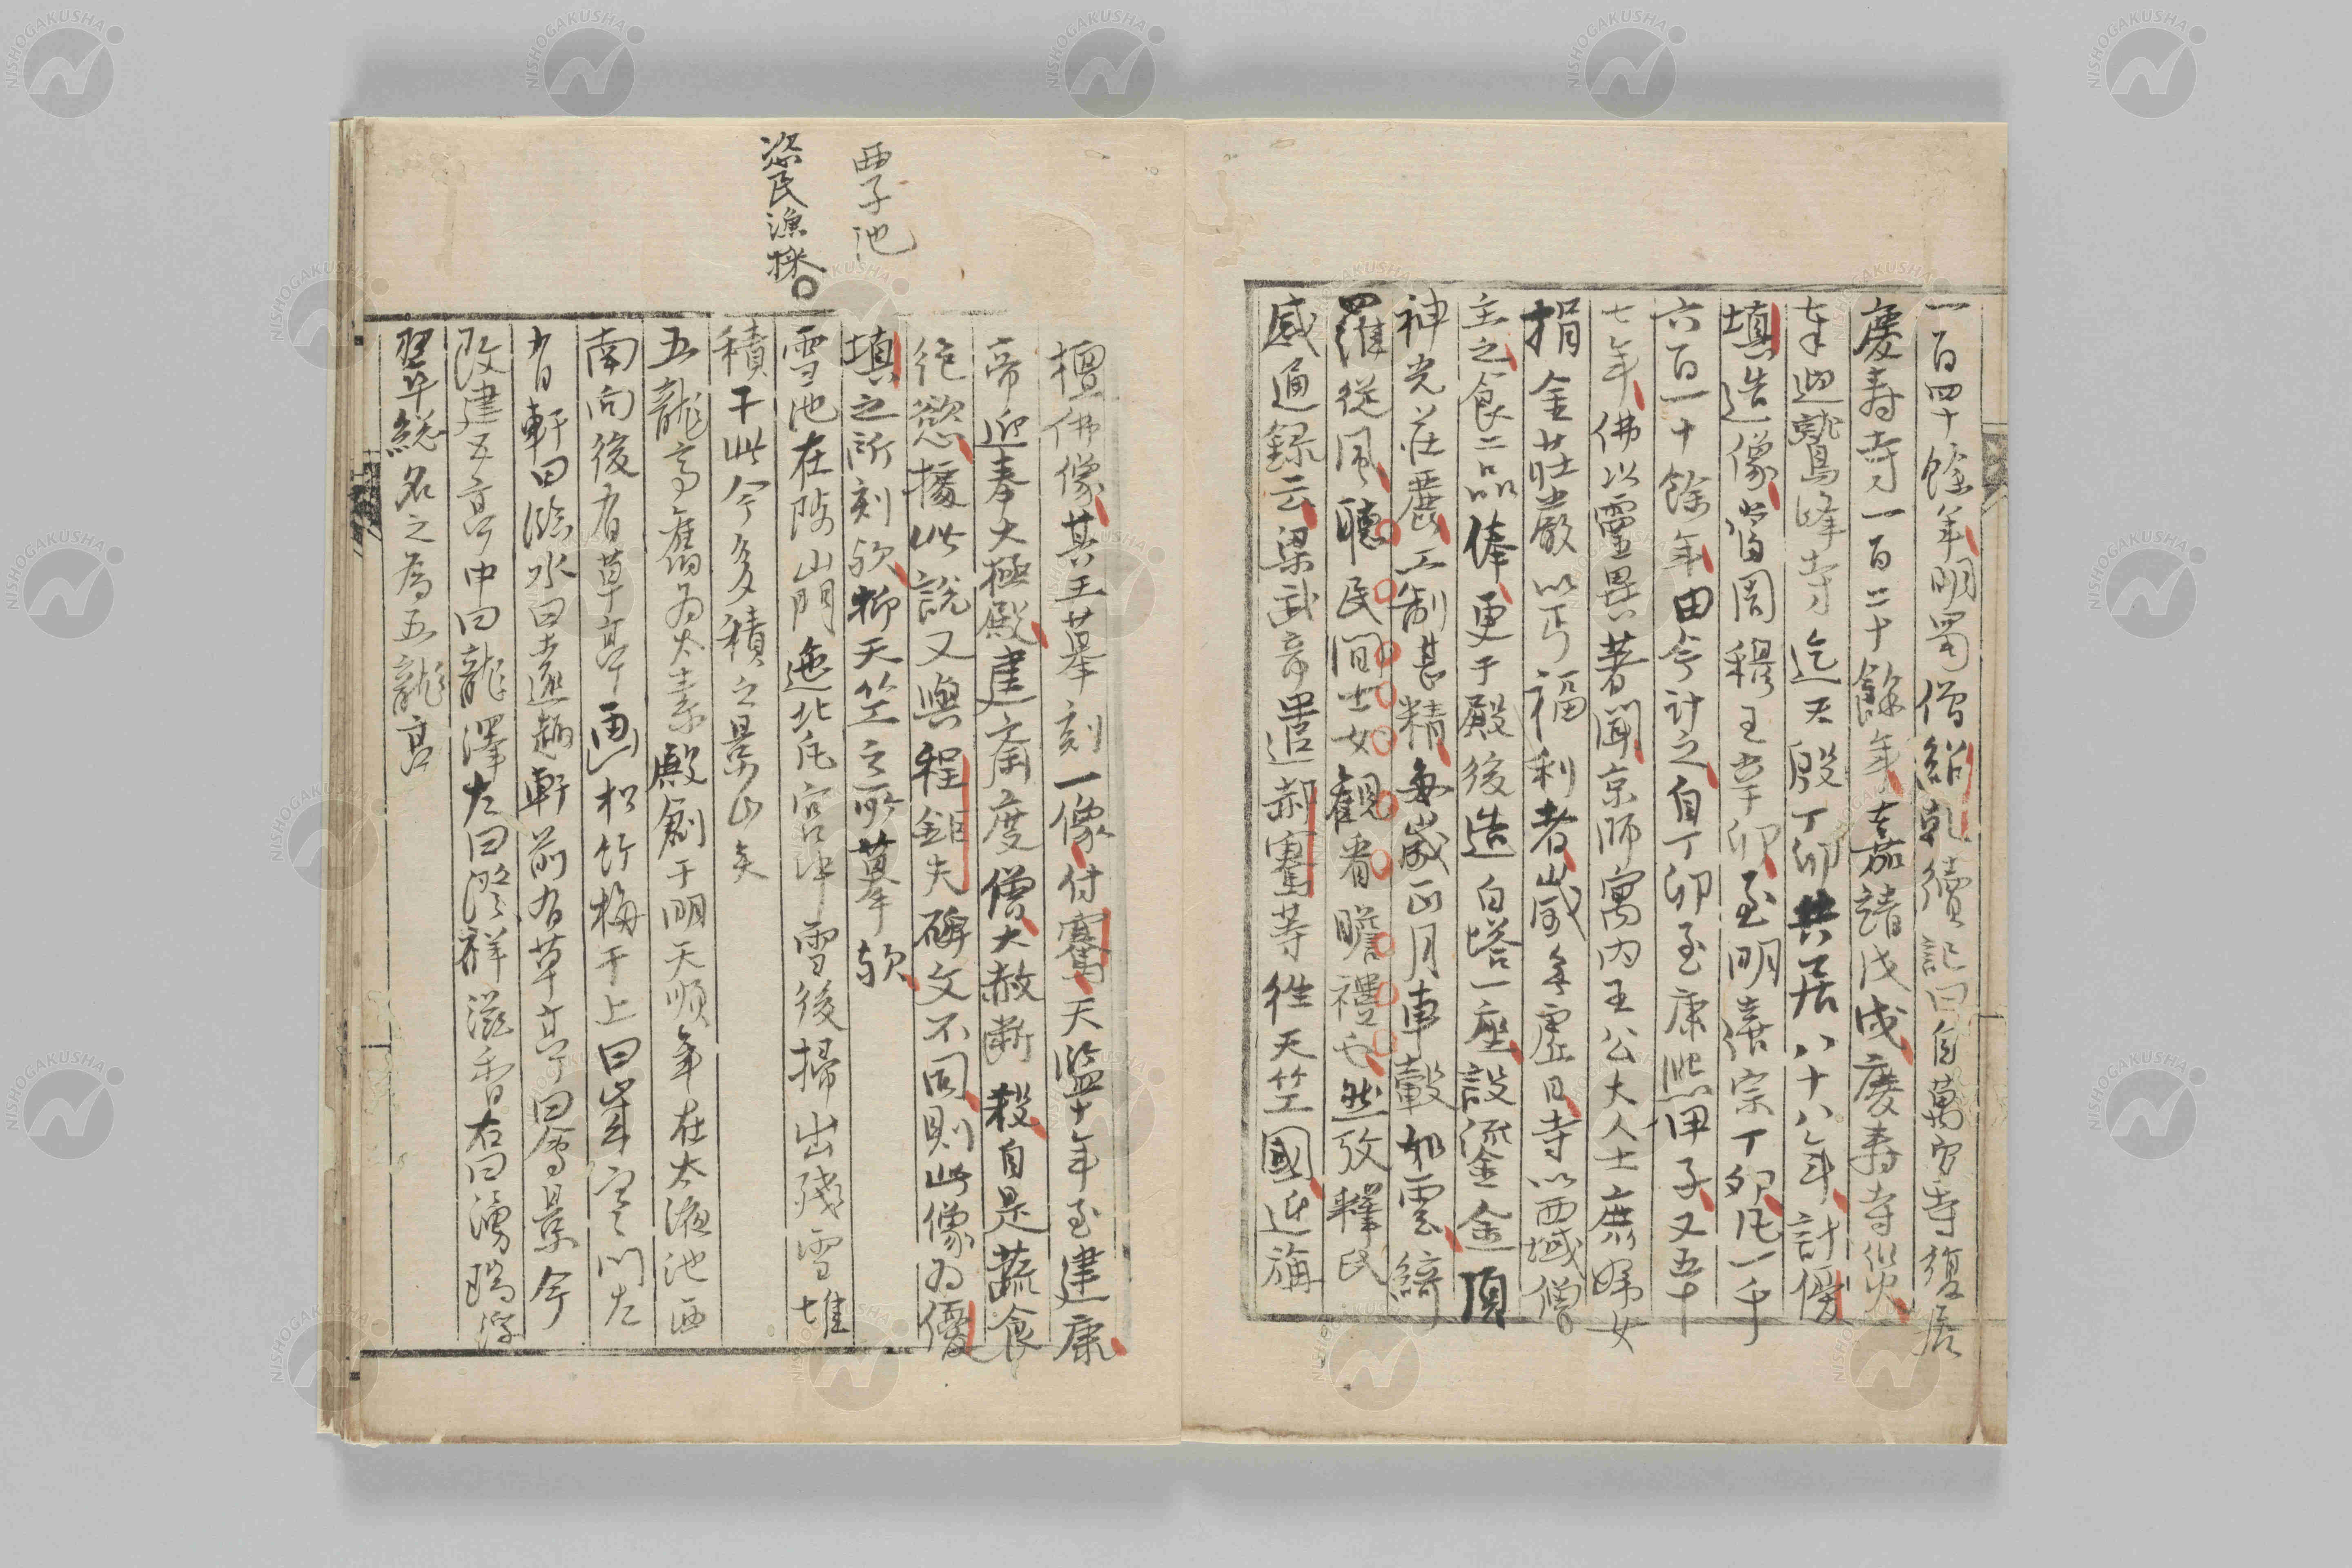 一百四十餘年明蜀僧紹乾續記曰自萬安寺復居
慶壽寺一百二十餘年嘉靖戊戌慶壽寺災
奉迎鷲峰寺迄天啟丁卯共居八十八年計優
塡造像當周穆王辛卯至明熹宗丁卯凡一千
六百一十餘年由今計之自丁卯至康熙甲子又五十
七年佛以靈異著聞京師寓內王公大人士庶婦女
捐金莊嚴以丐福利者歲無虛日寺以西域僧
主之食二品俸更于殿後造白塔一座設鎏金頂
神光莊嚴工制甚精每歲正月車轂如雲綺
羅從風聽民間士女觀者瞻禮也然攷釋氏
感通錄云梁武帝遣郝騫等往天竺國迎旃
檀佛像其王摹刻一像付騫天監十年至建康
帝迎奉太極殿建齋度僧大赦斷殺自是蔬食
絕慾據此說又與程鉅夫碑文不同則此像為優
塡之所刻歟抑天竺之所摹歟
雪池在陟山門迤北凡宮中雪後掃出殘雪堆
積于此今多積之景山矣
五龍亭舊為太素殿創于明天順年在太液池西
南向後有草亭画松竹梅于上曰歲寒門左
有軒曰臨水曰遠趣軒前有草亭曰會景今
改建五亭中曰龍澤左曰澄祥滋香右曰湧瑞浮
翠総名之為五龍亭
西子池
恣民漁採
NISHOGAKUSHA